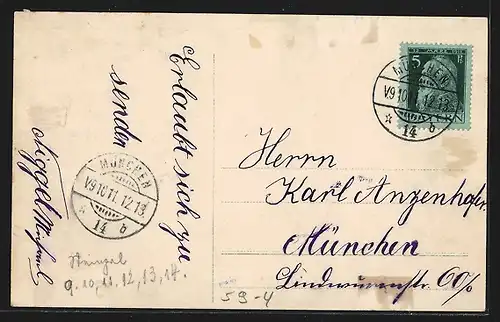 Erlaubt sich zu
senden
MÜNCHEN
V9 10 11. 12. 13.
* 14 b
Stempel
9. 10, 11. 12, 13, 14.
59-4
5
MÜNCHEN
V9 10 11. 12. 13.
* 14 b
Herrn
Karl Angenhofer
München
Lindwurmstr. 60/